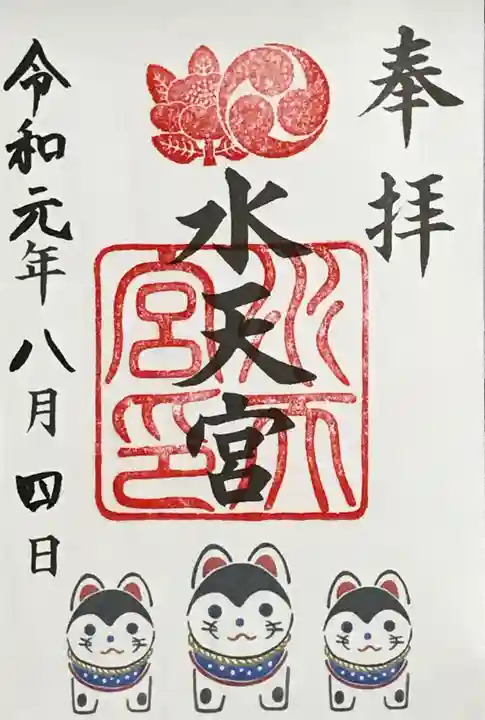 奉拝
水天宮
水天宮印
令和元年八月四日